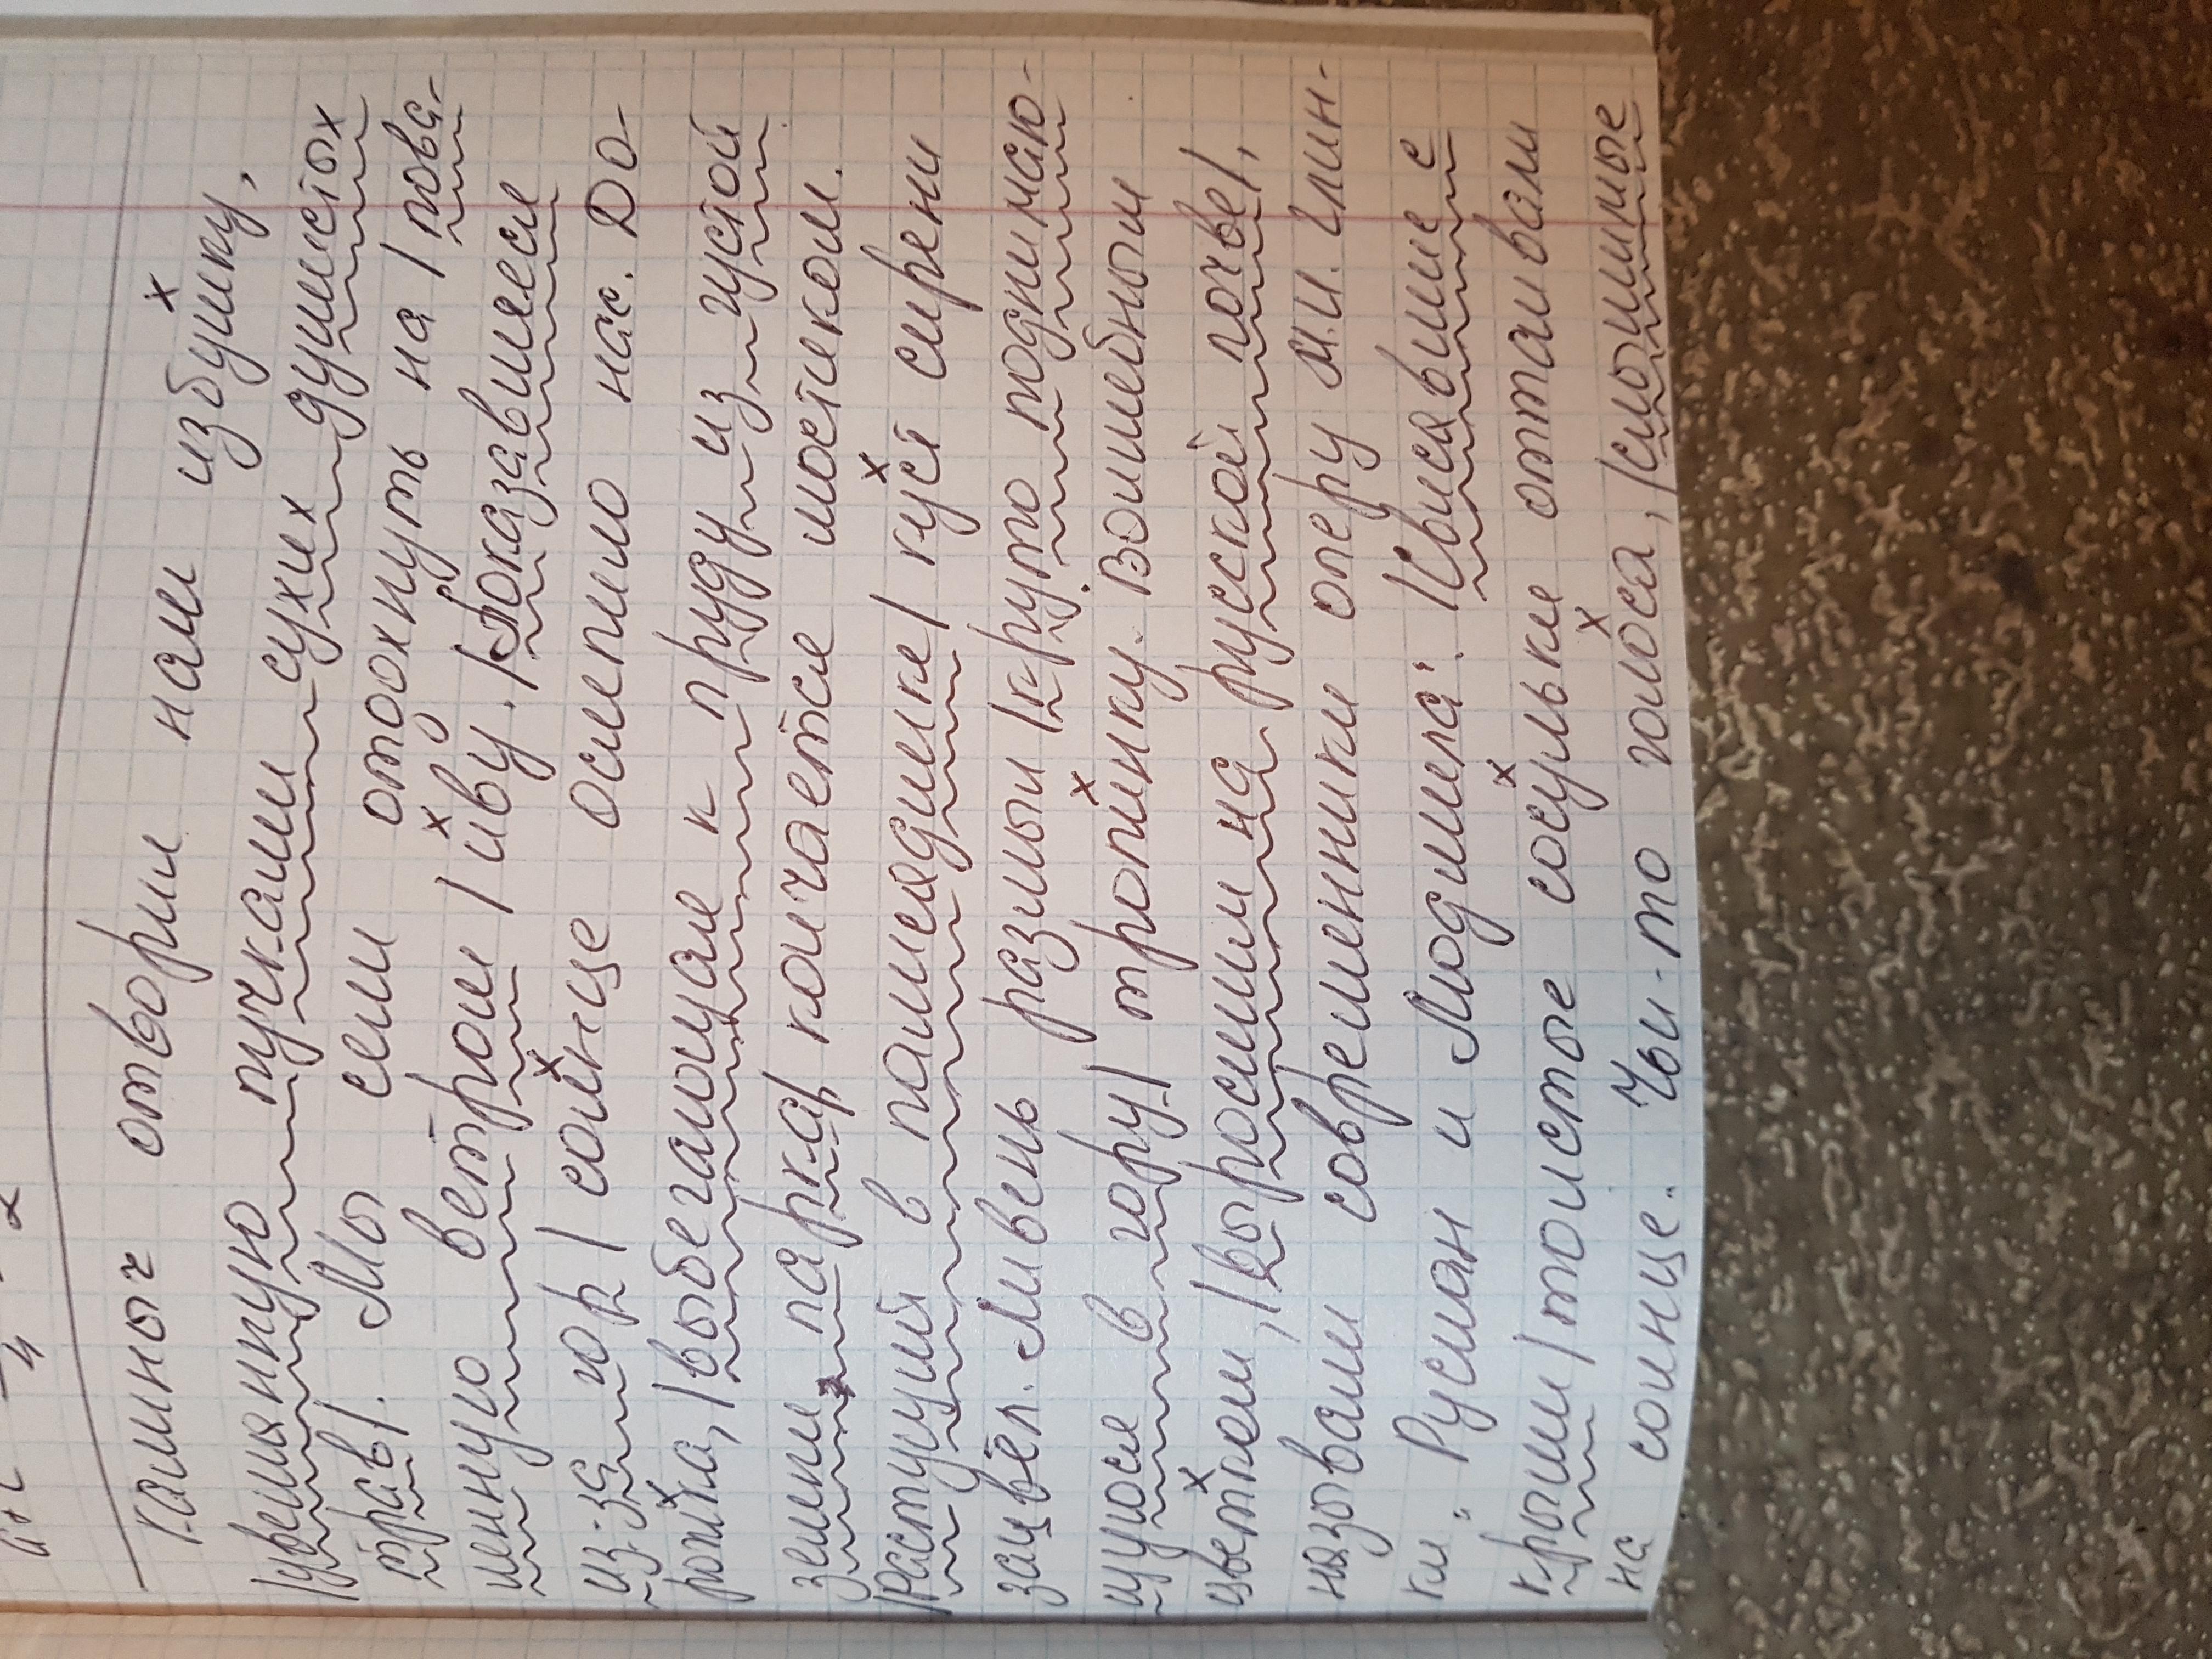 Галиныч отворил нам избушку,
|увешанную пучками сухих душистых
трав|. Мы сели отдохнуть на |пова-
ленную ветром| иву. |Показавшееся
из-за гор| солнце ослепило нас. До-
рожка, |выбегающая к пруду из густой
зелени парка,| кончается мостиком.
|Растущий в палисаднике| куст сирени
зацвёл. Ливень размыл |круто поднимаю-
щуюся в гору| тропинку. Волшебным
цветком, |выросшим на русской почве|,
называли современники оперу М.И. Глин-
ки "Руслан и Людмила". |Свисавшие с
крыши| толстые сосульки оттаивали
на солнце. Чьи-то голоса, |слышимые